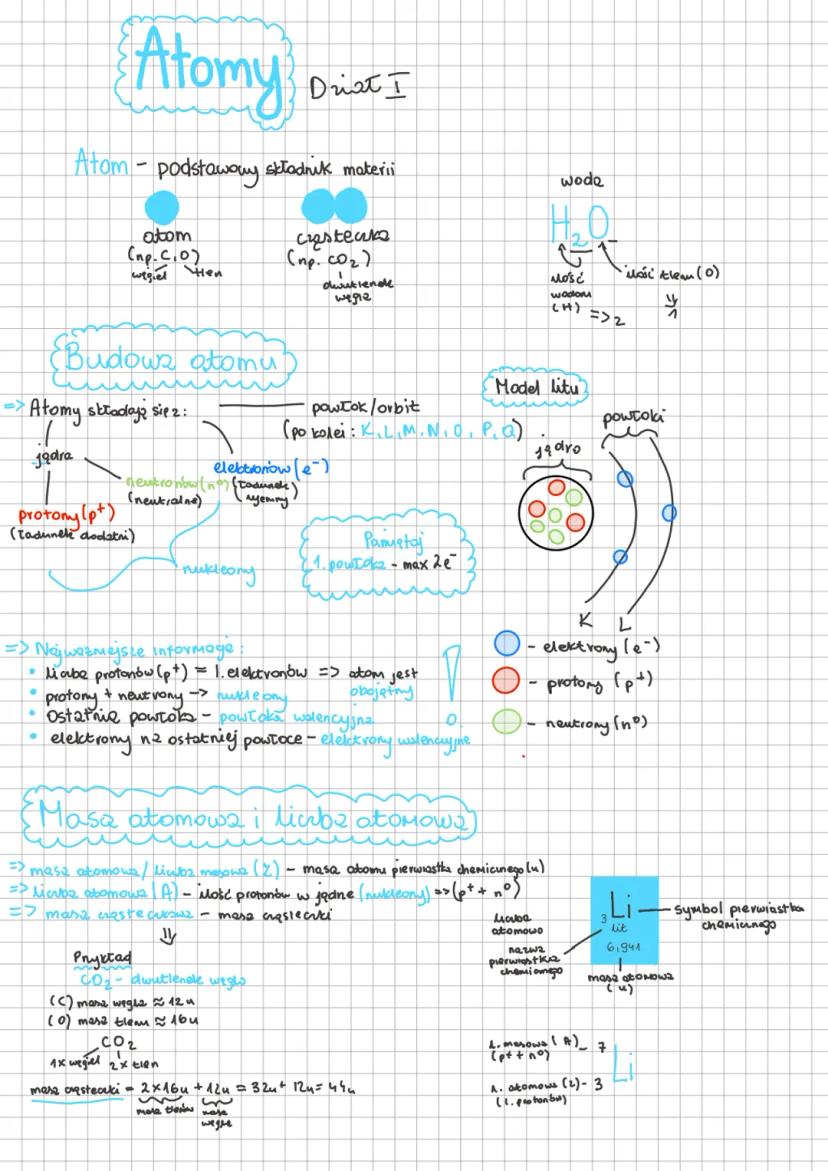 Atomy Dział I
Atom - podstawowy składnik materii
atom
(np. C, O)
węgiel tlen
cząsteczka
(np. CO₂)
dwutlenek
węgla
woda
H₂O
ilość
wodoru
(H) => 2
ilość tlenu (O)
1
Budowa atomu
=> Atomy składają się z:
powłok/orbit
(po kolei: K, L, M, N, O, P, Q)
jądra
elektronów (e⁻)
(ładunek
ujemny)
neutronów (n⁰)
(neutralne)
protony (p⁺)
(ładunek dodatni)
nukleony
Pamiętaj
1. powłoka - max 2e⁻
Model litu
powłoki
jądro
K L
- elektrony (e⁻)
- protony (p⁺)
- neutrony (n⁰)
=> Najważniejsze informacje: !
• liczba protonów (p⁺) = l. elektronów => atom jest
obojętny
• protony + neutrony -> nukleony
• Ostatnia powłoka - powłoka walencyjna
• elektrony na ostatniej powłoce - elektrony walencyjne
Masa atomowa i liczba atomowa
=> masa atomowa / liczba masowa (Z) - masa atomu pierwiastka chemicznego (u)
=> liczba atomowa (A) - ilość protonów w jądrze (nukleony) => (p⁺ + n⁰)
=> masa cząsteczkowa - masa cząsteczki
Przykład
CO₂ - dwutlenek węgla
(C) masa węgla ≈ 12u
(O) masa tlenu ≈ 16u
CO₂
1x węgiel 2x tlen
masa cząsteczki = 2x16u + 12u = 32u + 12u = 44u
masa tlenów masa
węgla
liczba
atomowa
nazwa
pierwiastka
chemicznego
₃Li
lit
6,941
symbol pierwiastka
chemicznego
masa atomowa
(u)
l. masowa (A) - 7
(p⁺ + n⁰)
Li
l. atomowa (Z) - 3
(l. protonów)